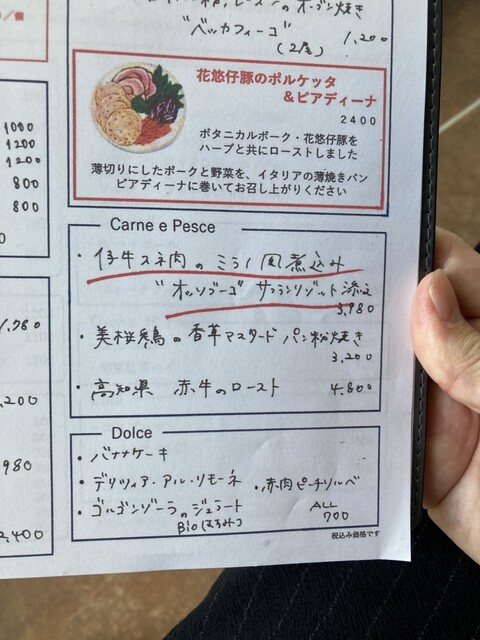 "ベッカフィーゴ"
(2尾) 1,200
花悠仔豚のポルケッタ
&ピアディーナ
2400
ボタニカルポーク・花悠仔豚を
ハーブと共にローストしました
薄切りにしたポークと野菜を、イタリアの薄焼きパン
ピアディーナに巻いてお召し上がりください
Carne e Pesce
・仔牛スネ肉のミラノ風煮込み
"オッソブーコ" サフランリゾット添え
3,980
・美桜鶏の香草マスタードパン粉焼き
3,200
・高知県 赤牛のロースト 4,800
Dolce
・バナナケーキ
・デリツィア・アル・リモーネ ・赤肉ピーチソルベ
・ゴルゴンゾーラのジェラート
Bio(はちみつ)
ALL
700
税込み価格です
/個
1000
1200
1200
800
800
0
1,780
,200
980
2,400